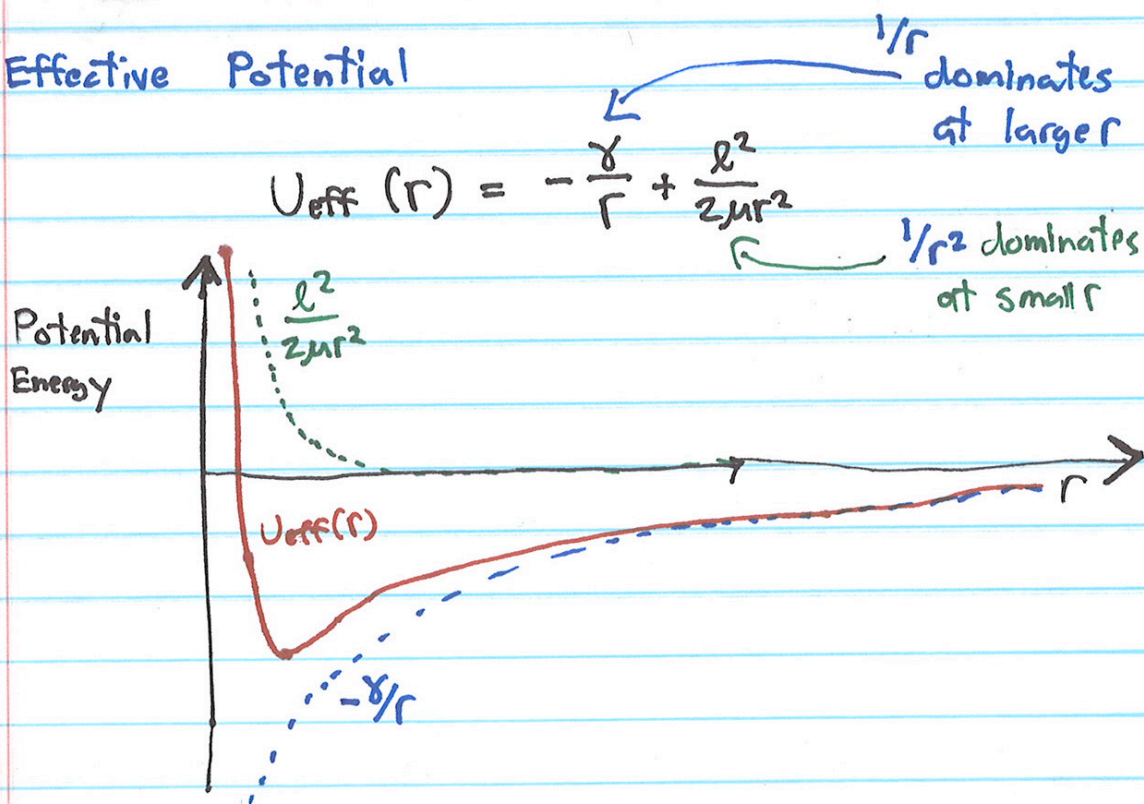 Effective Potential
1/r
dominates
at larger
U_eff (r) = - γ/r + ℓ²/2μr²
1/r² dominates
at small r
Potential
Energy
ℓ²/2μr²
r
U_eff(r)
-γ/r